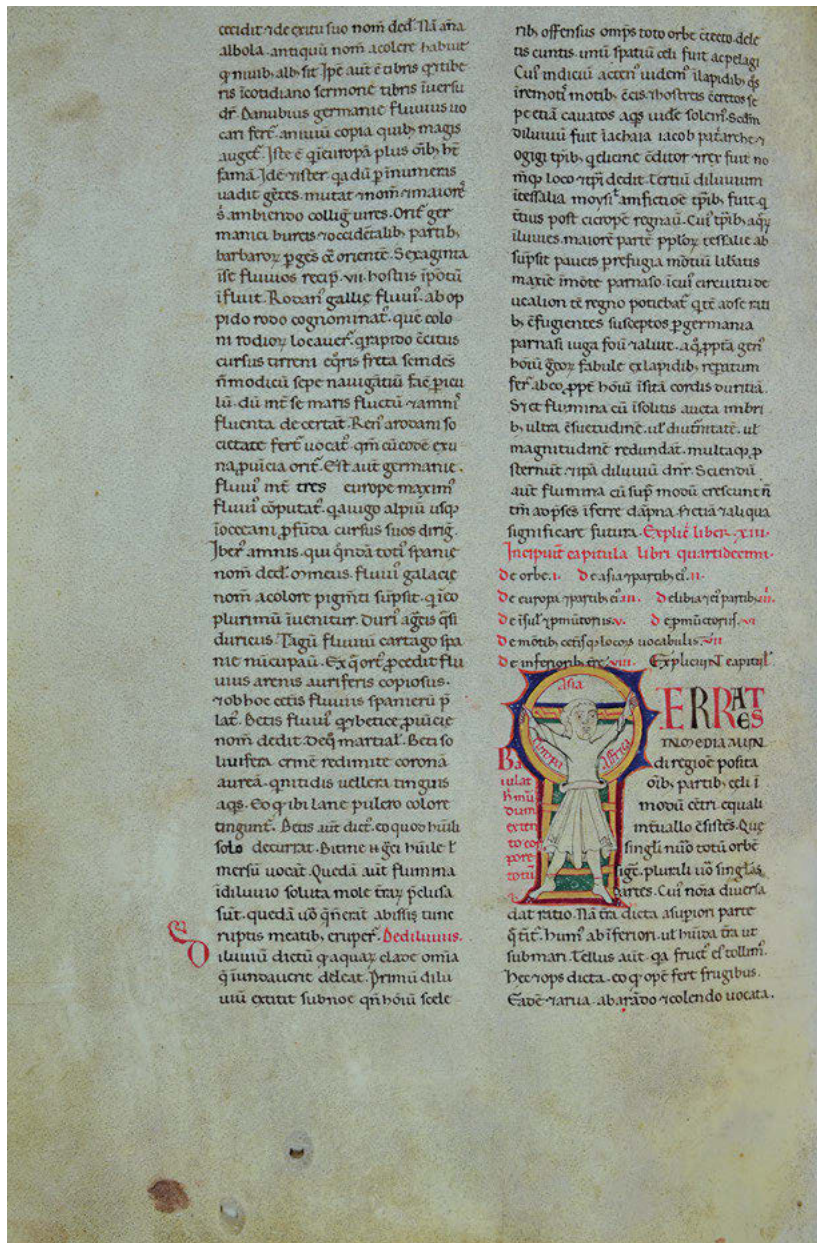 cecidit ⁊ de exitu suo nom̄ ded̄. Nā ana
albola. antiquū nom̄ a colore habuit
q̄ niuib; alb; sit. Ip̄e aut̄ ē tibris q̄ rtibe
ris ī cotidiano sermone tibris īuersu
dr̄. Danubius germanie fluuius uo
cari fert̄. a niuiū copia quib; magis
auget̄. Iste ē q̄ ī europa plus oīb; ht̄
famā. Idē ⁊ ister qa dū p īnumeras
uadit gētes. mutat ⁊ nom̄ ⁊ maiore
s̄. ambiendo colliḡ uires. Orit̄ a ger
manici
barbaroꝝ
īse fluuios recip̄. vii. hostiis ī pōtū
īfluit. Rodan' gallie fluui'. ab op
pido rodo cognominat'. quē colo
ni rodioꝝ locauer̄. q̄ rapido ēcitus
cursus tirreni eq̄ris freta scindēs
n̄ modicū sepe nauigātiū fac̄ picu
lū. dū int̄ se maris fluctū ⁊ amni'
fluenta decertāt. Ren' a rodani so
cietate fert̄ uocat'. qm̄ cū eodē ex u
na puīcia orit̄. Est aut̄ germanie.
fluui' int̄ tres europe maxim'
fluui' cōputat'. q a iugo alpiū usq;
ī oceani pfūda cursus suos diriḡ.
Iber' amnis. qui q̄ndā toti' spanie
nom̄ ded̄. Mineus. fluui' galacie
nom̄ a colore pigm̄ti sūpsit. q ī eo
plurimū īuenitur. Duri' a gēis q̄si
duricus. Tagū fluuiū cartago spa
nie nūcupauit. Ex q̄ ort' pcedit flu
uius arenis auriferis copiosus.
⁊ ob hoc cētis fluuiis spanierū p̄
lat'. Betis fluui' q ⁊ betice puīcie
nom̄ dedit. De q̄ martial'. Beti so
liuifera crinē redimite corona
aureā. q nitidis uellera tinguis
aqs. Eo q ibi lane pulcro colore
tingunt̄. Betis aut̄ dict'. eo quod hūili
solo decurrat. Bitine .n. gēi hūile ł
mersū uocāt. Quedā aut̄ flumina
ī diluuio soluta mole traꝝ p̄clusa
sūt. quedā uō q̄ n̄ erāt abissis tunc
ruptis meatib; eruper̄. De diluuiis.
Diluuiū dictū q aquaꝝ clade omīa
q̄ inundauerit deleat. Primū dilu
uiū extitit sub noe qn̄ hōiū scele
rib; offensus omps toto orbe ctecto. dele
tis cuntis. unū spatiū celi fuit ac pelagi
Cui' indiciū acten' uidem' ī lapidib; q̄s
ī remotis motib; ēcis ⁊ hostreis ēcretos se
pe etiā cauatos aqs uide solem'. Scdm
diluuiū fuit ī achaia iacob pat̄arche ⁊
ogigi tp̄ib; q eleusine ēditor ⁊ rex fuit no
mēq; loco ⁊ tp̄i dedit. Tertiū diluuium
ī tessalia moysi ł amfictiōe tp̄ib; fuit. q
t̄tius post cicrope regnauit. Cui' tp̄ib; aqꝝ
illuuies. maiorē partē pploꝝ tessalie ab
sūpsit paucis p refugia mōtiū libatis
maxie ī mōte parnaso. ī cui' circuitu de
ucalion tē regno potiebat̄. q tē ad se rati
b; ēfugientes susceptos p gemina
parnasi iuga fouit ⁊ aluit. a q̄ ppt̄a gen'
hōiū ḡcoꝝ fabule ex lapidib; repatum
fer̄. ab eo ppt̄ hōiū īsitā cordis duritiā.
Sꝫ et flumina cū īsolitis aucta imbri
b; ultra ēsuetudinē. ul' diut̄nitatē. ul'
magnitudinē redundāt. multaq; p
sternūt. ⁊ ip̄a diluuiū dnr̄. Sciendū
aut̄ flumina cū sup̄ modū crescunt n̄
tm̄ ad p̄ses īferre dāpna s; etiā ⁊ aliqua
significare futura. Explic̄ liber. xiii.
Incipiūt capitula libri quartidecimi.
De orbe. i. De asia ⁊ partib; ei'. ii.
De europa ⁊ partib; ei'. iii. De libia ⁊ ei' partib;. iiii.
De īsul' ⁊ pmūtoriis. v. De pmūctoriis. vi
De mōtib; cetīsq; locoꝝ uocabulis. vii
De inferiorib; tr̄e. viii. Expliciunt capitul'.
Asia
Europa
Affrica
TERRA EST
IN MEDIA MUN
di regiōe posita
oīb; partib; celi ī
modū cētri equali
int̄uallo ēsistēs. Que
singli nūo totū orbē
sig̃t. plurali uō singlās
partes. Cui' noīa diuersa
Baiulat
h̄ mū
dum
exten
to cor
pore
totū
dat ratio. Nā tr̄a dicta a supiori parte
q̄ tit̄. hum' ab īferiori. ul' hūida tr̄a ut
sub mari. Tellus aut̄. qa fruct' ei' tollim'.
Hec ⁊ ops dicta. eo q opē fert frugibus.
Eadē ⁊ arua. ab arādo ⁊ colendo uocata.